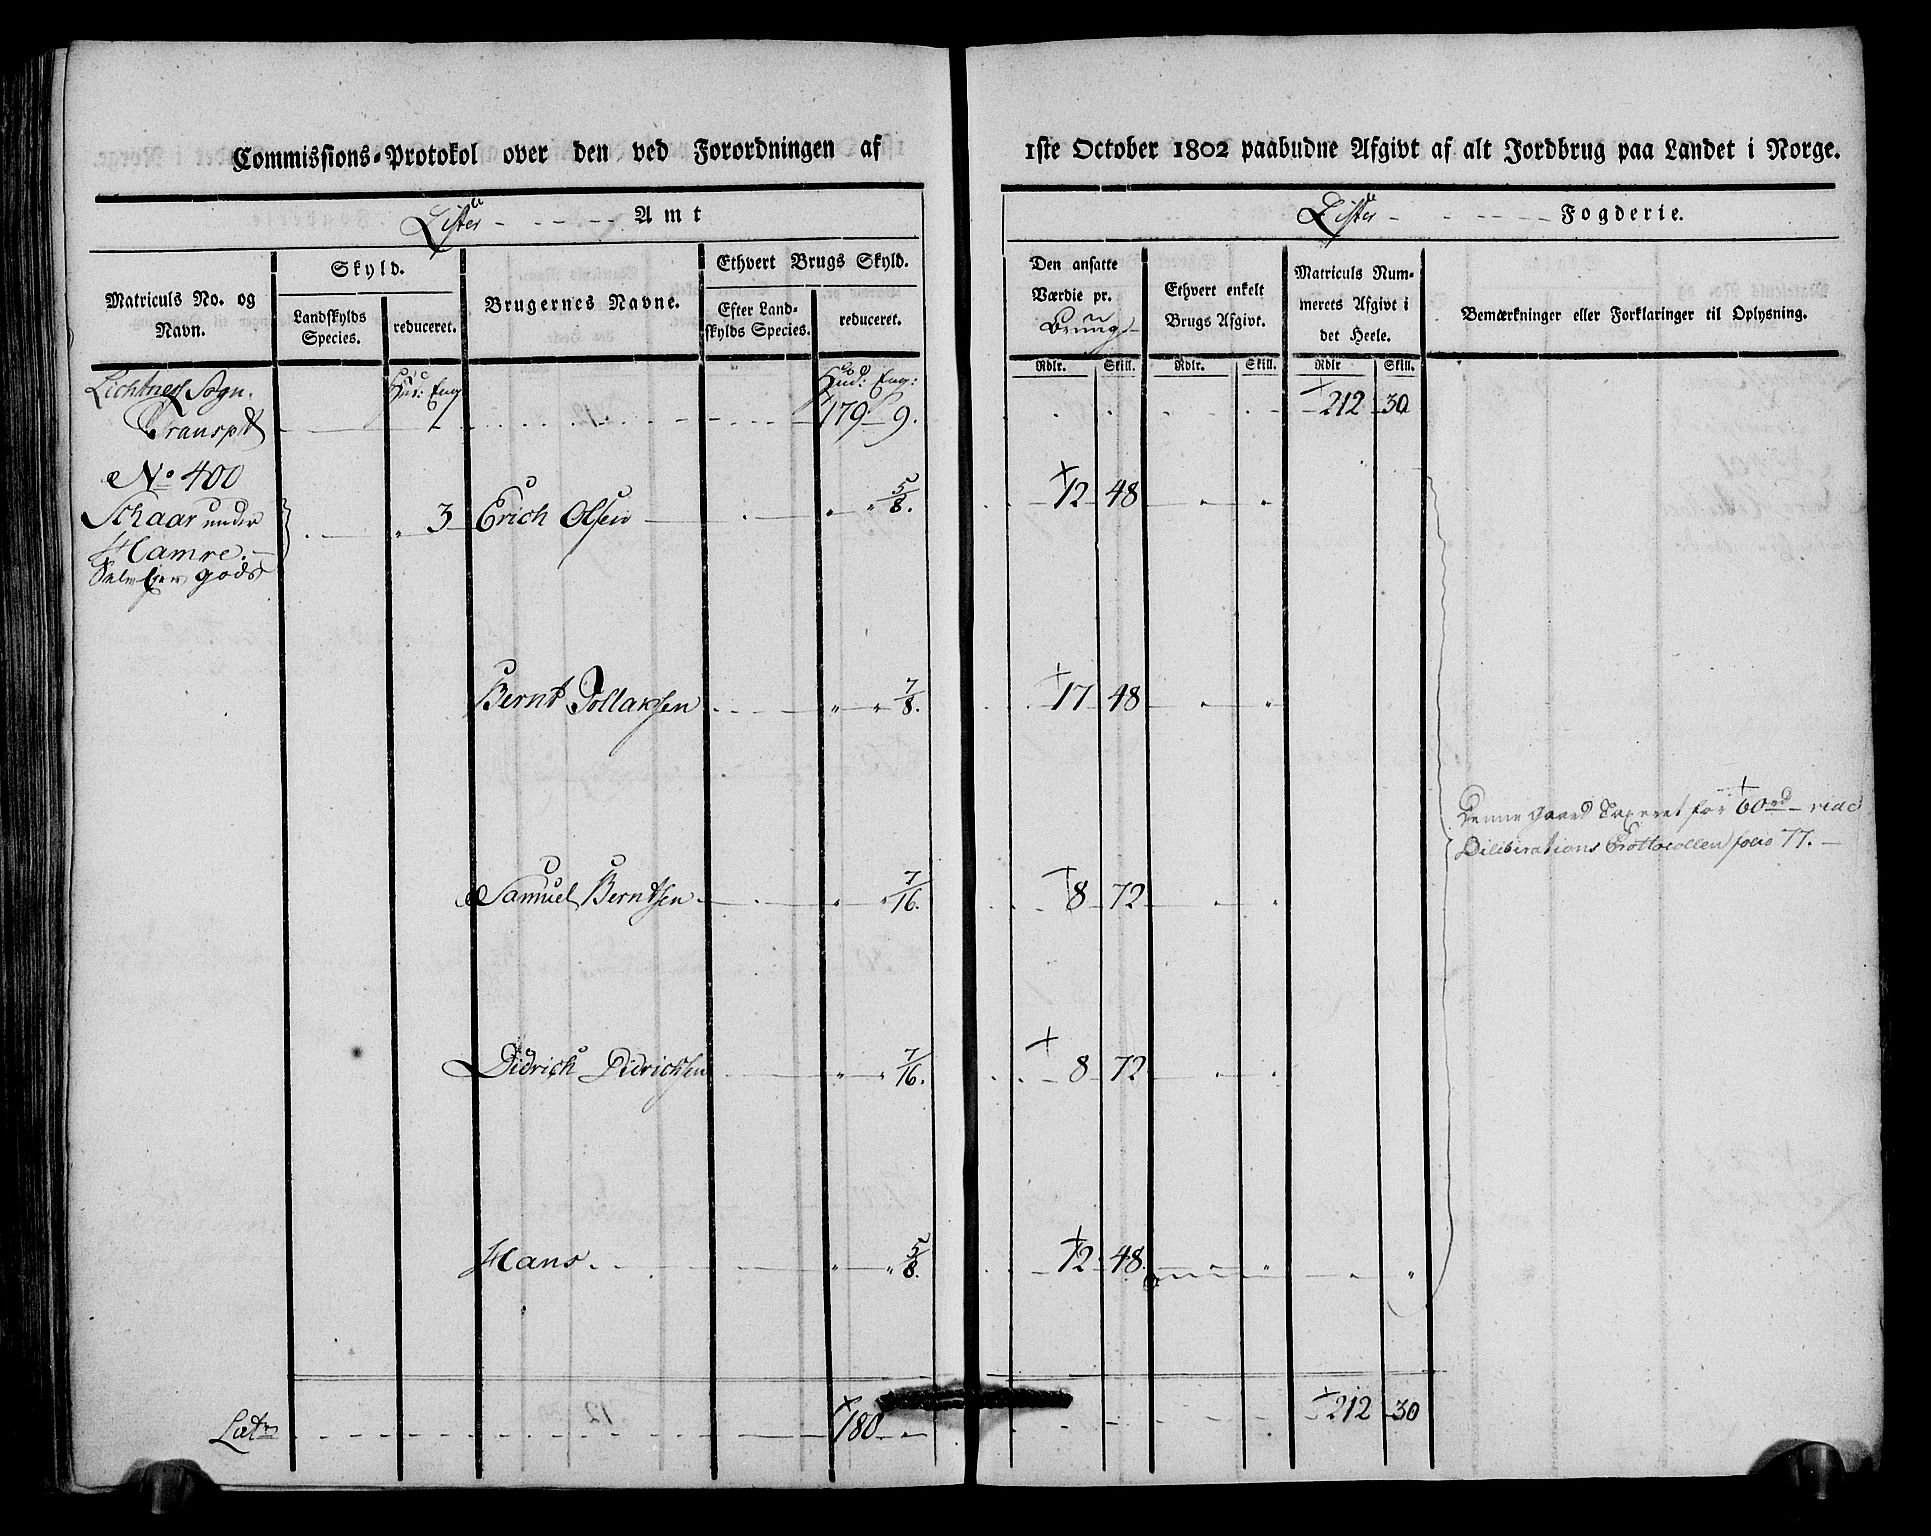 Commissions-Protokol over den ved Forordningen af
1ste October 1802 paabudne Afgivt af alt Jordbrug paa Landet i Norge.
Lister Amt
Lister Fogderie.
Matriculs No. og Navn.
Skyld.
Landskylds Species.
reduceret.
Brugernes Navne.
Ethvert Brugs Skyld.
Efter Landskylds Species.
reduceret.
Den ansatte Værdie pr. Brug
Ethvert enkelt Brugs Afgivt.
Matriculs Nummerets Afgivt i det Heele.
Bemærkninger eller Forklaringer til Oplysning.
Rdlr. Skill. Rdlr. Skill. Rdlr Skill.
Sogn. Hud: Eng Hud: Eng:
Transpt 179 9. 212 30
No 400
Schaar under 3 Erich Olsen 5/8. 12 48
Hamre.
gods
Bernt Tollaksen 7/8. 17 48
Denne Gaard Taxeret for 60 rd vide
Deliberations Protocollen folio 77.
Samuel Berntsen 7/16. 8 72
Didrich Didrichsen 7/16. 8 72
Hans 5/8. 12 48
Lat 180 212 30